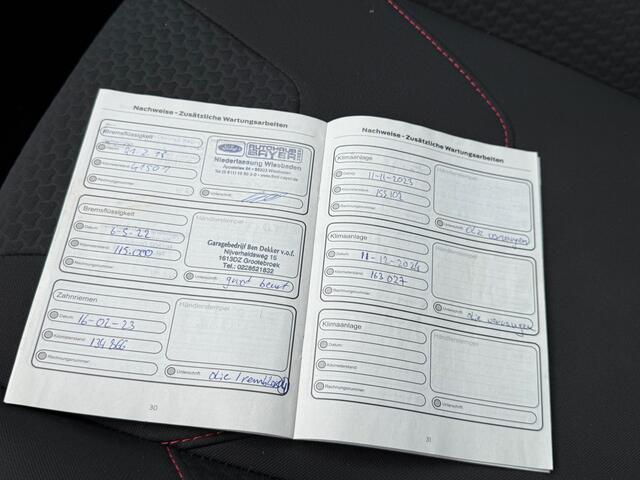 Nachweise - Zusätzliche Wartungsarbeiten
Bremsflüssigkeit
Ford
AUTOHAUS
BAYER
Niederlassung Wiesbaden
Unterschrift:
Bremsflüssigkeit
Datum:
6-5-22
Kilometerstand:
115.000
Rechnungsnummer:
Händlerstempel
Garagebedrijf Ben Dekker v.o.f.
Nijverheidsweg 15
1613DZ Grootebroek
Tel.: 0228521832
Unterschrift:
Zahnriemen
Datum:
16-02-23
Kilometerstand:
134866
Rechnungsnummer:
Händlerstempel
Unterschrift:
olie /
30
Nachweise - Zusätzliche Wartungsarbeiten
Klimaanlage
Datum:
11-11-2023
Kilometerstand:
153.102
Rechnungsnummer:
Händlerstempel
Unterschrift:
olie
Klimaanlage
Datum:
11-12-2024
Kilometerstand:
163027
Rechnungsnummer:
Händlerstempel
Unterschrift:
olie
Klimaanlage
Datum:
Kilometerstand:
Rechnungsnummer:
Händlerstempel
Unterschrift:
31